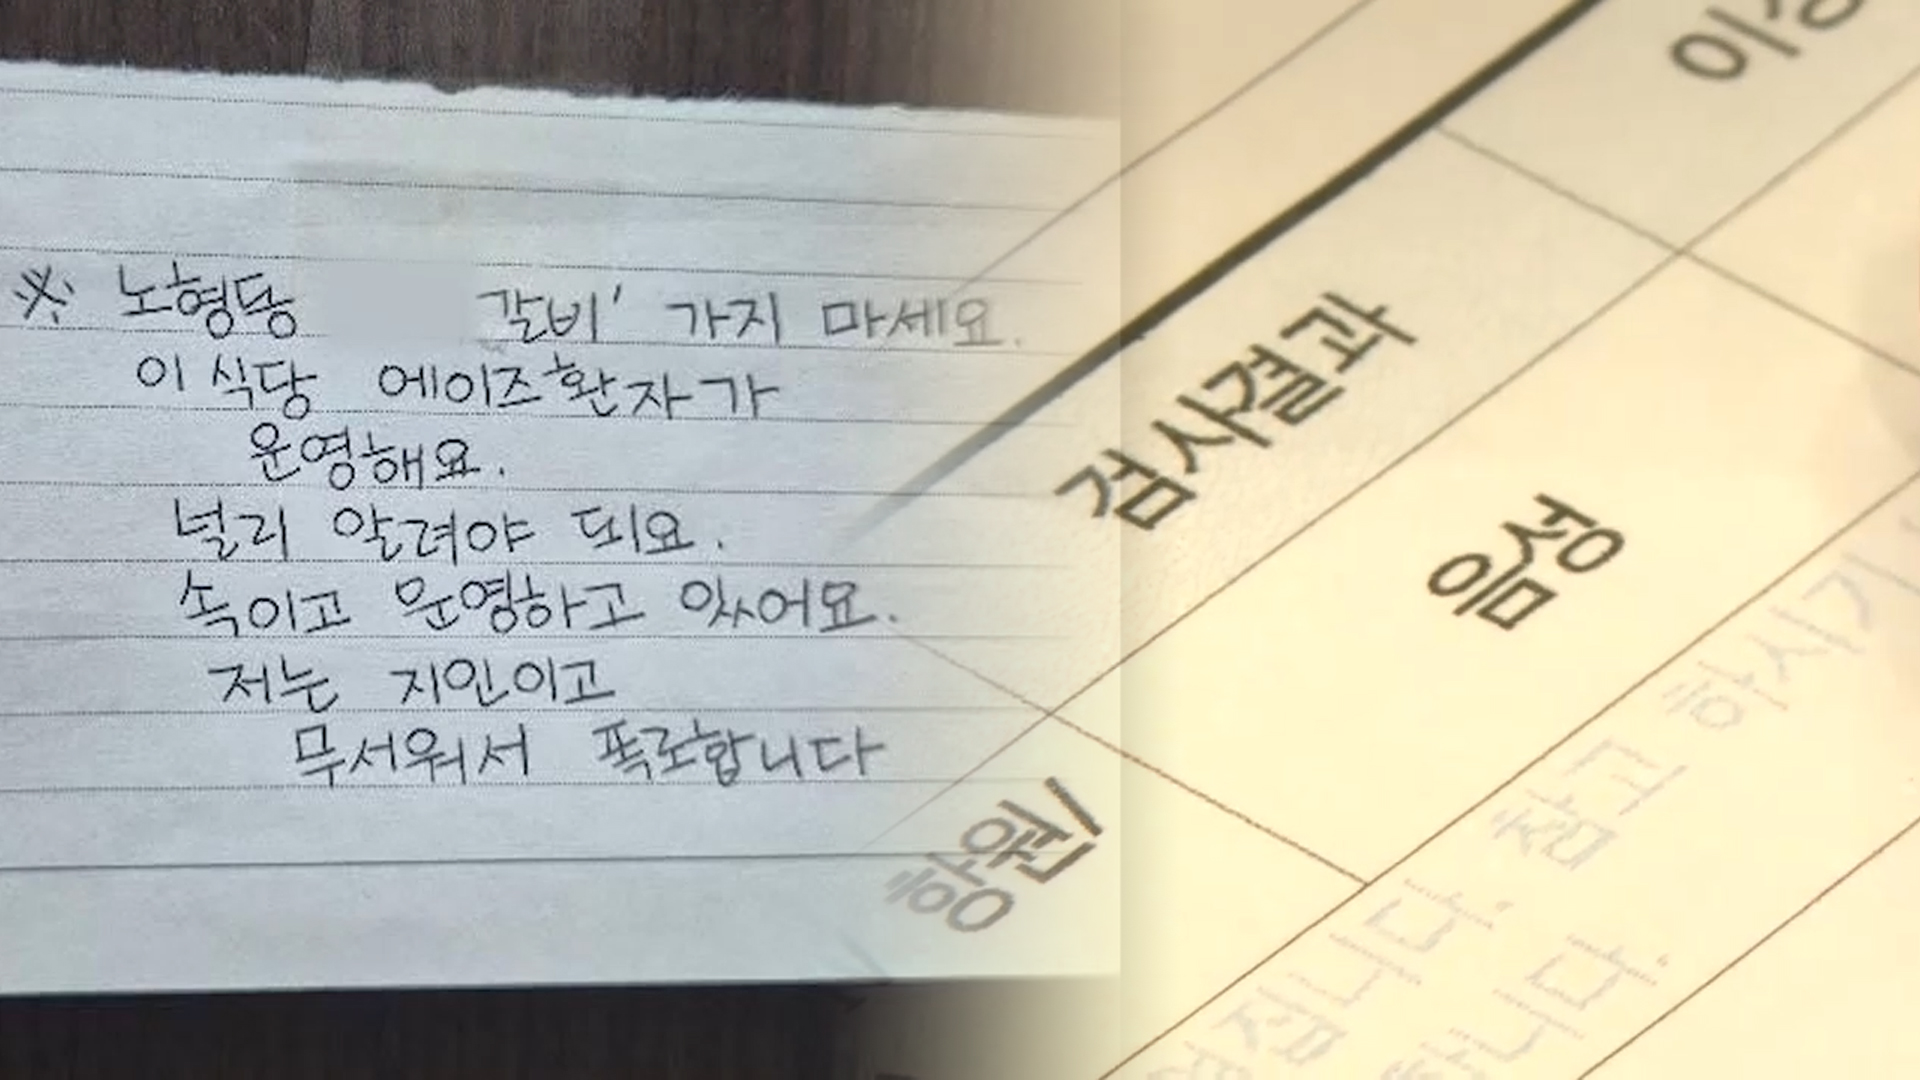 ※ 노형동 갈비' 가지 마세요.
이 식당 에이즈환자가
운영해요.
널리 알려야 돼요.
속이고 운영하고 있어요.
저는 지인이고
무서워서 폭로합니다
검사결과
음성
항원/